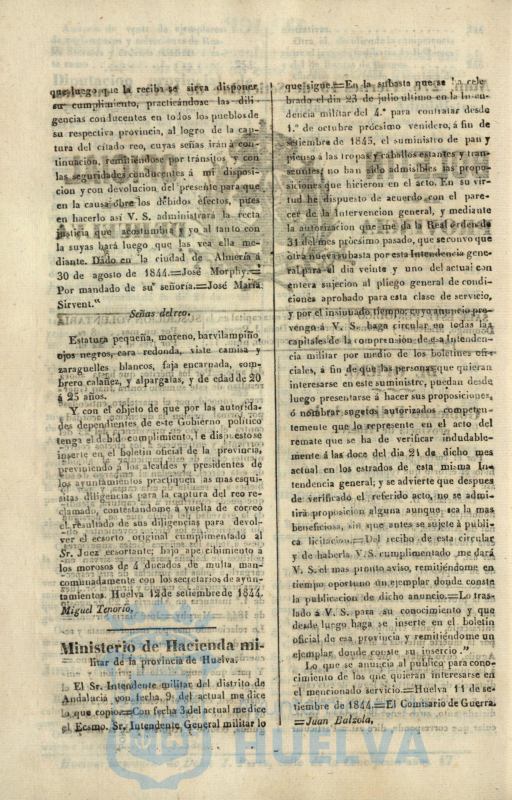 que luego que la reciba se sirva disponer
su cumplimiento, practicándose las dili-
gencias conducentes en todos los pueblos de
su respectiva provincia, al logro de la cap-
tura del citado reo, cuyas señas irán á con-
tinuacion, remitiéndose por tránsitos y con
las seguridades conducentes á mi disposi-
cion y con devolucion del presente para que
en la causa obre los debidos efectos, pues
en hacerlo asi V. S. administrará la recta
justicia que acostumbra y yo al tanto con
la suyas hará luego que las vea ella me-
diante. Dado en la ciudad de Almería á
30 de agosto de 1844.=José Morphy.=
Por mandado de su señoria.=José Maria
Sirvent."
Señas del reo.
Estatura pequeña, moreno, barvilampiño
ojos negros, cara redonda, viste camisa y
zaraguelles blancos, faja encarnada, som-
brero calañez, y alpargatas, y de edad de 20
á 25 años.
Y con el objeto de que por las autorida-
des dependientes de este Gobierno politico
tenga el debido cumplimiento, he dispuesto se
inserte en el boletin oficial de la provincia,
previniendo á los alcaldes y presidentes de
los ayuntamientos practiquen las mas esqui-
sitas diligencias para la captura del reo re-
clamado, contestándome á vuelta de correo
el resultado de sus diligencias para devol-
ver el esorto original cumplimentado al
Sr. Juez esortante; bajo apercibimiento á
los morosos de 4 ducados de multa man-
comunadamente con los secretarios de ayun-
tamientos. Huelva 12 de setiembre de 1844.
Miguel Tenorio.
Ministerio de Hacienda mi-
litar de la provincia de Huelva.
El Sr. Intendente militar del distrito de
Andalucia con fecha 9 del actual me dice
lo que copio.=Con fecha 3 del actual me dice
el Ecsmo. Sr. Intendente General militar lo
que sigue.=En la subasta que se ha cele-
brado el dia 23 de julio ultimo en la Inten-
dencia militar del 4.° para contratar desde
1.° de octubre prócsimo venidero, á fin de
setiembre de 1845, el suministro de pan y
pienso á las tropas y caballos estantes y tran-
seuntes; no han sido admisibles las propo-
siciones que hicieron en el acto. En su vir-
tud he dispuesto de acuerdo con el pare-
cer de la Intervencion general, y mediante
la autorizacion que me da la Real orden de
31 del mes prócsimo pasado, que se convoque
otra nueva subasta por esta Intendencia gene-
ral para el dia veinte y uno del actual con
entera sujecion al pliego general de condi-
ciones aprobado para esta clase de servicio,
y por el insinuado tiempo; cuyo anuncio pre-
vengo á V. S. haga circular en todas las
capitales de la comprension de esa Intenden-
cia militar por medio de los boletines ofi-
ciales, á fin de que las personas que quieran
interesarse en este suministro, puedan desde
luego presentarse á hacer sus proposiciones,
ó nombrar sugetos autorizados competen-
temente que lo represente en el acto del
remate que se ha de verificar indudable-
mente á las doce del dia 21 de dicho mes
actual en los estrados de esta misma In-
tendencia general; y se advierte que despues
de verificado el referido acto, no se admi-
tirá proposicion alguna aunque sea la mas
beneficiosa, sin que antes se sujete á publi-
ca licitacion.=Del recibo de esta circular
y de haberla V. S. cumplimentado me dará
V. S. el mas pronto aviso, remitiéndome en
tiempo oportuno un ejemplar donde conste
la publicacion de dicho anuncio.=Lo tras-
lado á V. S. para su conocimiento y que
desde luego haga se inserte en el boletin
oficial de esa provincia y remitiéndome un
ejemplar donde conste su insercio."
Lo que se anuncia al publico para cono-
cimiento de los que quieran interesarse en
el mencionado servicio.=Huelva 11 de se-
tiembre de 1844.=El Comisario de Guerra.
=Juan Balzola.
HUELVA